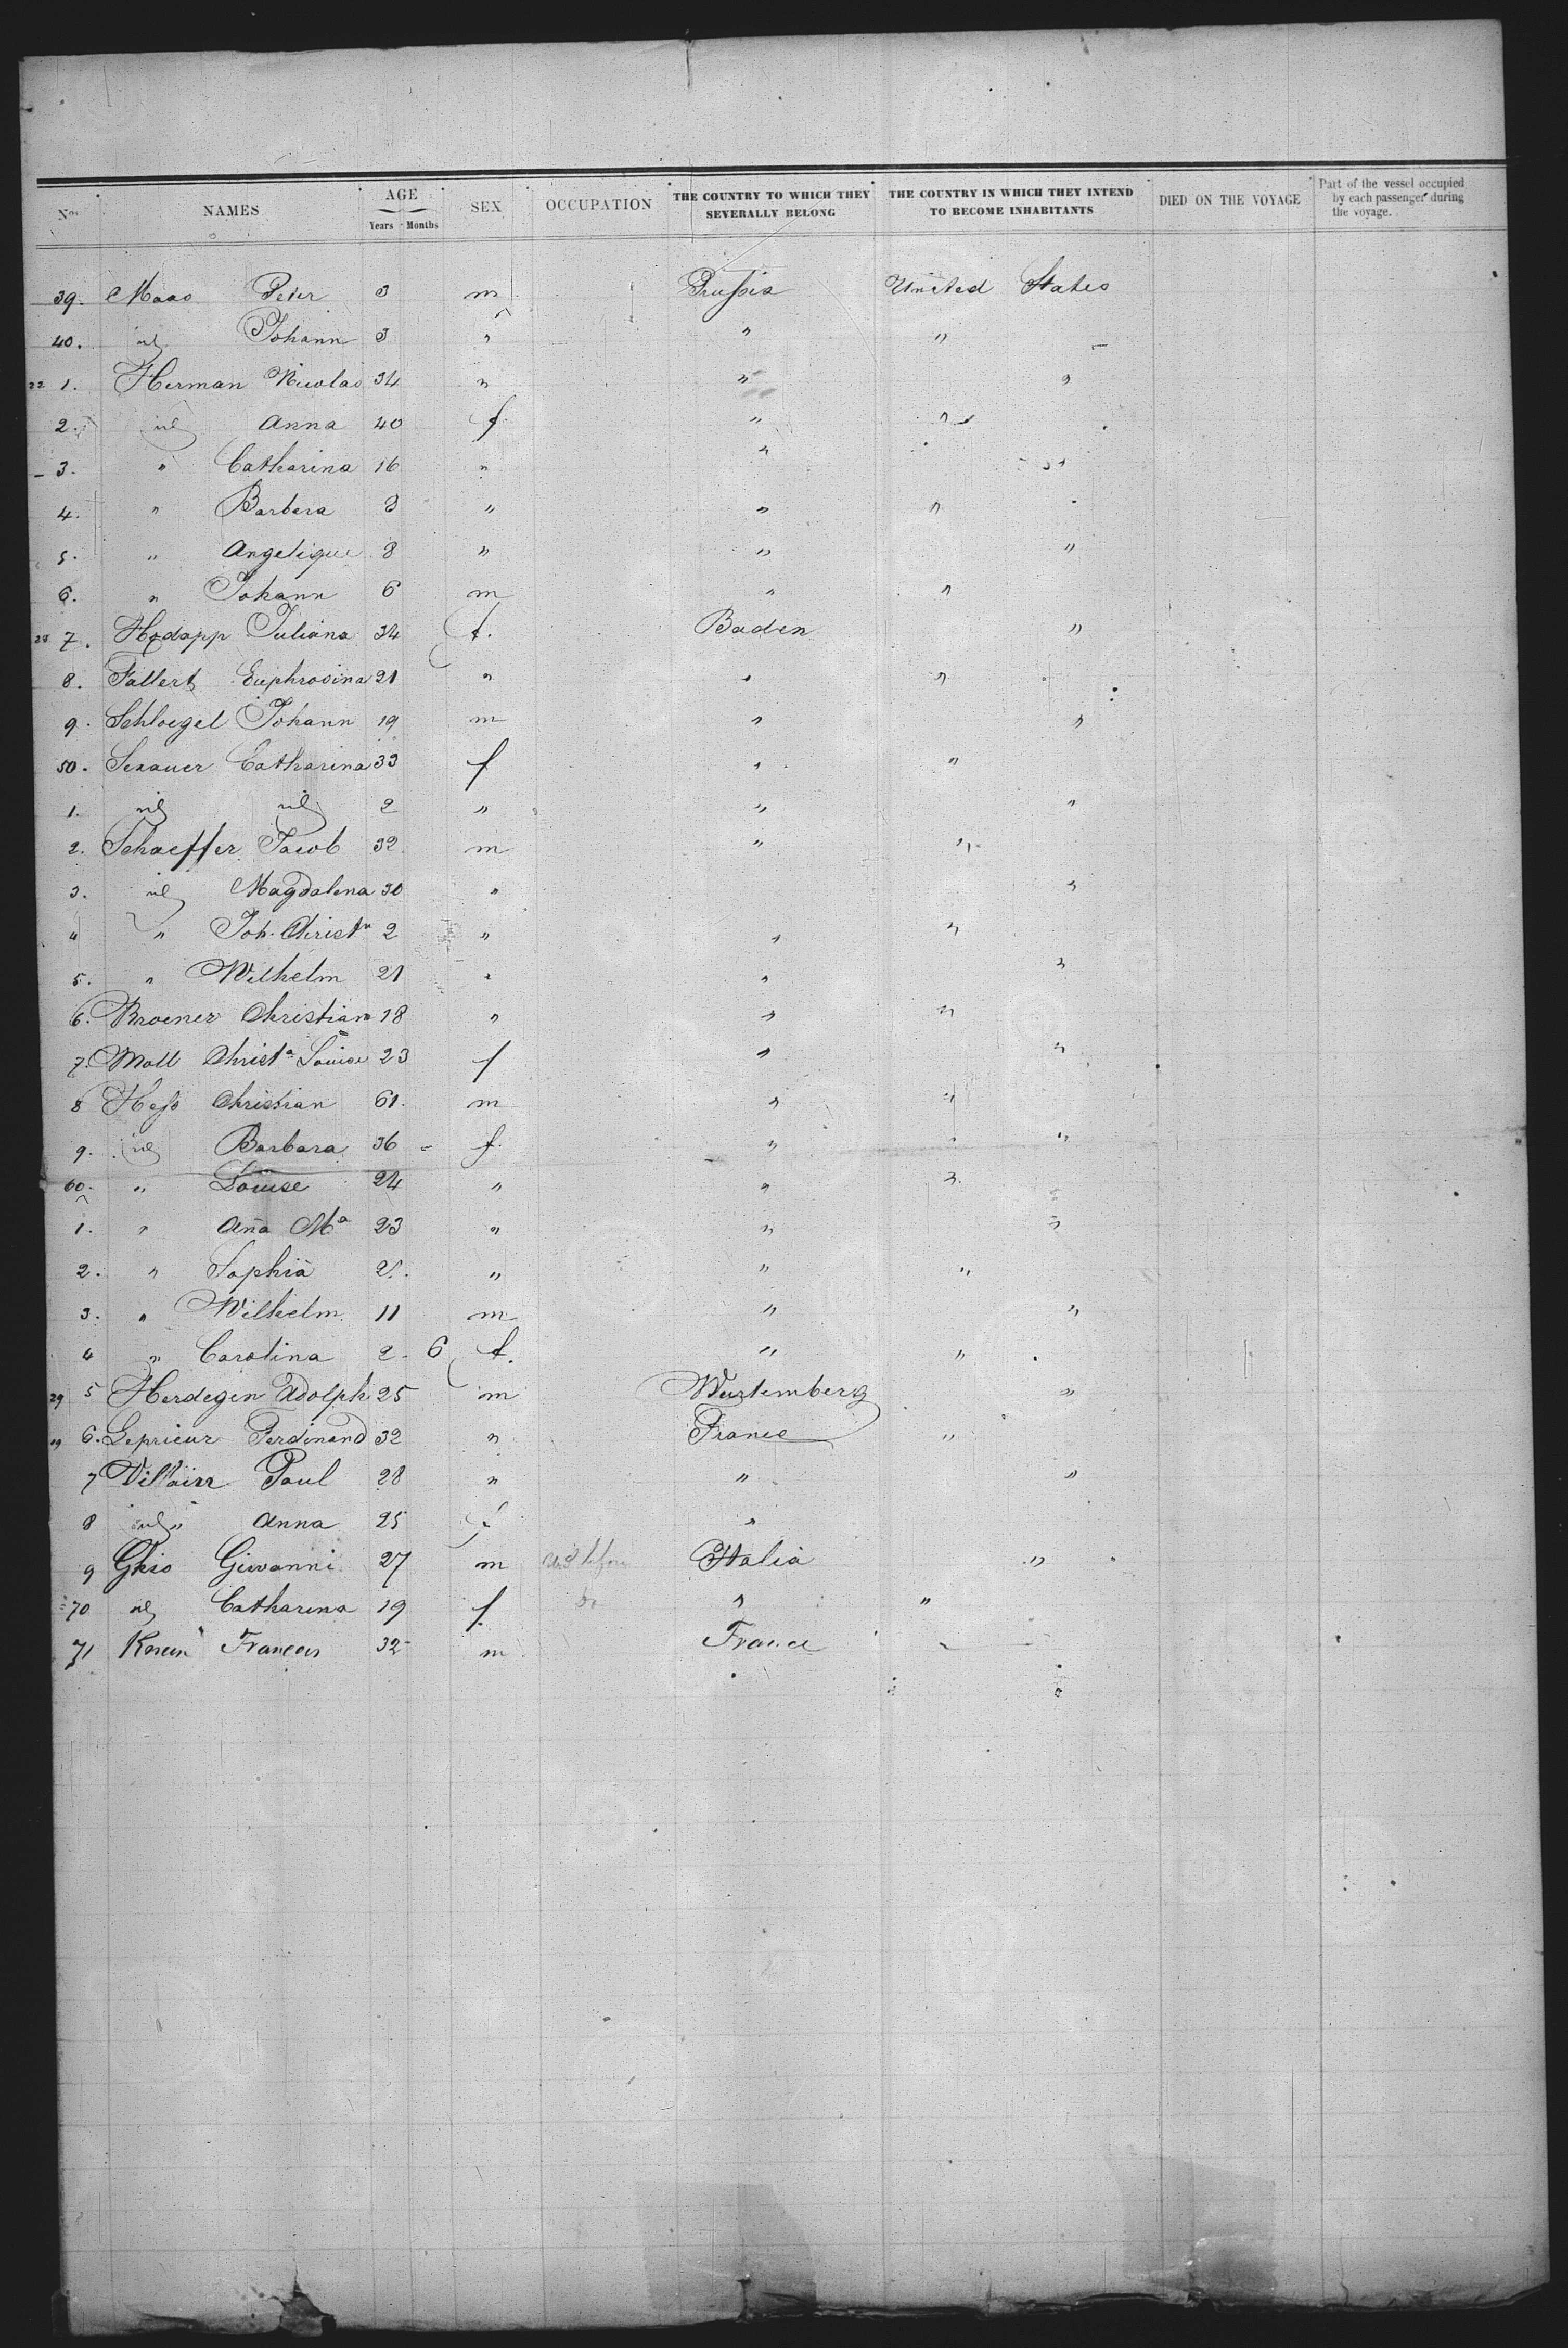 Nos NAMES AGE Years Months SEX OCCUPATION THE COUNTRY TO WHICH THEY SEVERALLY BELONG THE COUNTRY IN WHICH THEY INTEND TO BECOME INHABITANTS DIED ON THE VOYAGE Part of the vessel occupied by each passenger during the voyage.
39. Maas Peter 3 m Prussia United States
40. id Johann 3 " " "
22 1. Herman Nicolas 34 " " "
2. id Anna 40 f. " "
3. " Catharina 16 " " "
4. " Barbera 8 " " "
5. " Angelique 8 " " "
6. " Johann 6 m " "
7. Hodapp Juliana 34 f. Baden "
8. Fallert Euphrosina 21 " " "
9. Schloegel Johann 19 m " "
50. Sexauer Catharina 33 f " "
1. id id 2 " " "
2. Schaeffer Jacob 32 m " "
3. id Magdalena 30 " "
4 " Joh. Christn 2 " " "
5. " Wilhelm 21 " " "
6. Broener Christian 18 " " "
7. Moll Christa Louise 23 f " "
8 Hess Christian 61. m " "
9. id Barbara 36 f. " "
60. " Louise 24 " " "
1. " Aña Ma 23 " " "
2. " Sophia " " "
3. " Wilhelm 11 m " "
4 " Carolina 2 6 f. " "
29 5 Herdegen Adolph 25 m Wurtemberg "
6. Leprieur Ferdinand 32 " France "
7 Paul 28 " " "
8 id Anna 25 f "
9 Ghio Giovanni 27 m Italia "
70 id Catharina 19 f do " "
71 Francois 32 m France